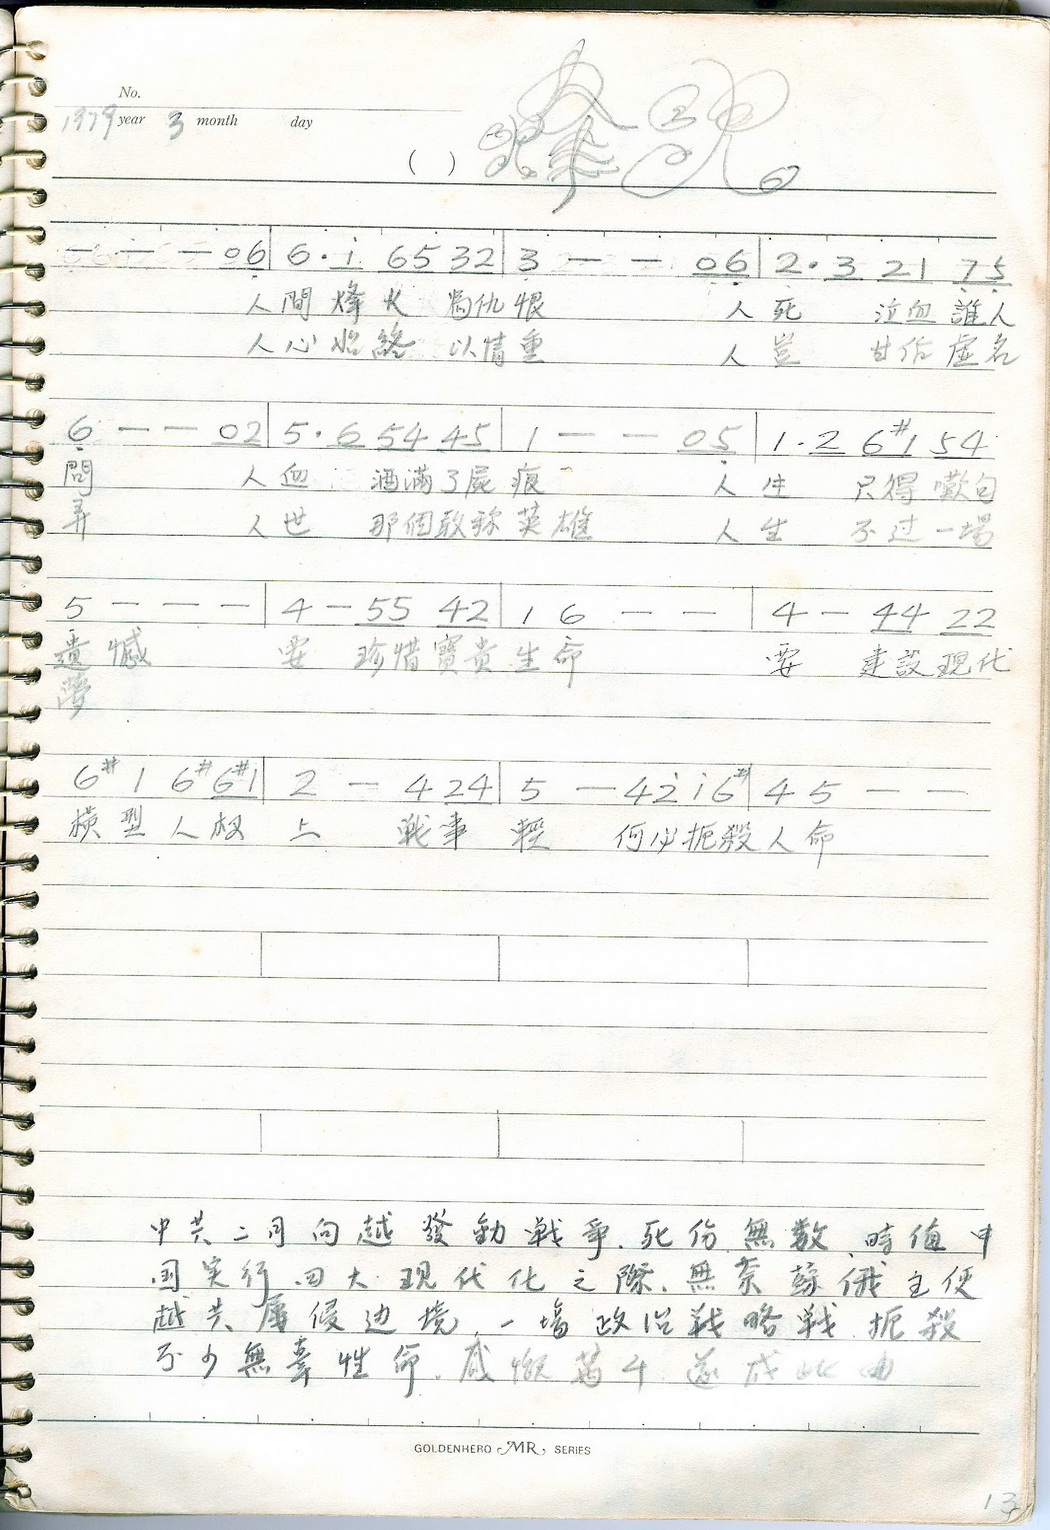 No.
1979 year 3 month day
( )
— — — 06 | 6·i 65 32 | 3 — — 06 | 2·3 21 75
人間烽火 為仇恨 人死 泣血誰人
人心始終 以情重 人豈 甘佔虛名
6 — — 02 | 5·6 54 45 | 1 — — 05 | 1·2 6#1 54
問 人血 洒滿了屍痕 人生 只得嘆句
弄 人世 那個敢称英雄 人生 不过一場
5 — — — | 4 — 55 42 | 1 6 — — | 4 — 44 22
遺憾 要 珍惜寶貴生命 要 建設現代
夢
6# 1 6# 6#1 | 2 — 4 24 | 5 — 4 2 i 6# | 4 5 — —
模型人权 上 戰事 輕 何必扼殺人命
中共二月向越發動戰爭.死伤無数、時值中
国実行四大現代化之際.無奈蘇俄主使
越共屢侵边境,一場政治戰略戰.扼殺
不少無辜性命.感慨萬千.遂成此曲
GOLDENHERO MR SERIES
13